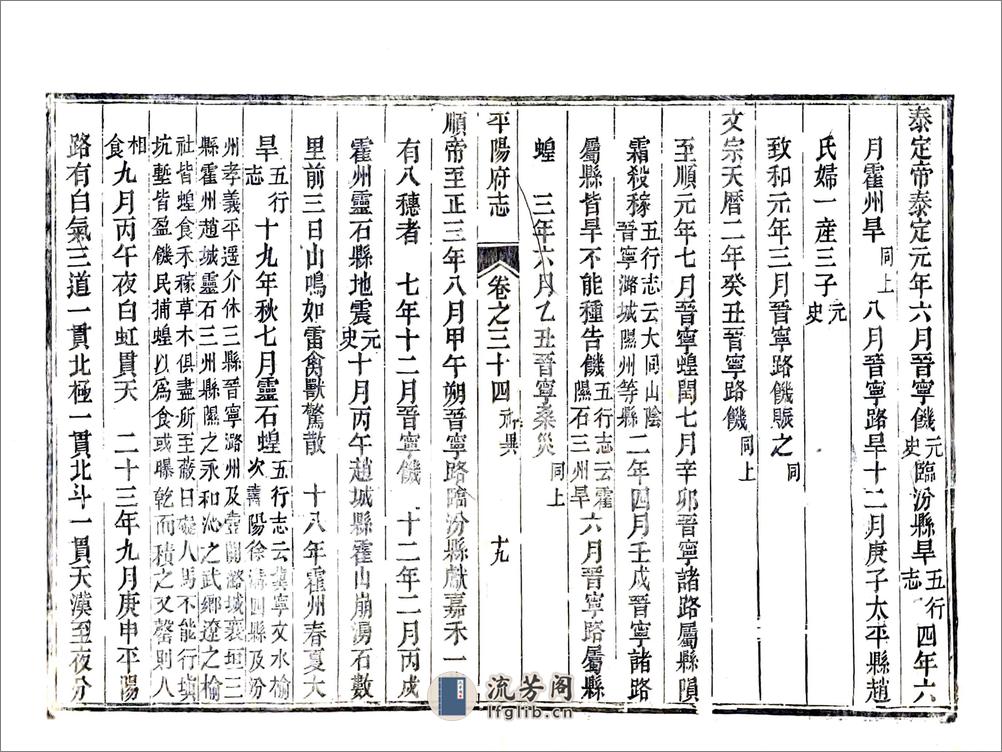 泰定帝泰定元年六月晉寧饑元史臨汾縣旱五行志四年六
月霍州旱同上八月晉寧路旱十二月庚子太平縣趙
氏婦一產三子元史
致和元年三月晉寧路饑賑之同
文宗天曆二年癸丑晉寧路饑同上
至順元年七月晉寧蝗閏七月辛卯晉寧諸路屬縣隕
霜殺稼五行志云大同山陰晉寧潞城隰州等縣二年四月壬戌晉寧諸路
屬縣皆旱不能種告饑五行志云霍隰石三州旱六月晉寧路屬縣
蝗 三年六月乙丑晉寧桑災同上
平陽府志 卷之三十四 祥異 十九
順帝至正三年八月甲午朔晉寧路臨汾縣獻嘉禾一
有八穗者 七年十二月晉寧饑 十二年二月丙戌
霍州靈石縣地震元史十月丙午趙城縣霍山崩湧石數
里前三日山鳴如雷禽獸驚散 十八年霍州春夏大
旱五行志 十九年秋七月靈石蝗五行志云冀寧文水榆次壽陽徐溝四縣及汾
州孝義平遙介休三縣晉寧潞州及壺關潞城襄垣三
縣霍州趙城靈石三州縣隰之永和沁之武鄉遼之榆
社皆蝗食禾稼草木俱盡所至蔽日礙人馬不能行填
坑塹皆盈饑民捕蝗以為食或曝乾而積之又罄則人
相食九月丙午夜白虹貫天 二十三年九月庚申平陽
路有白氣三道一貫北極一貫北斗一貫天漢至夜分
流芳阁
lfglib.cn